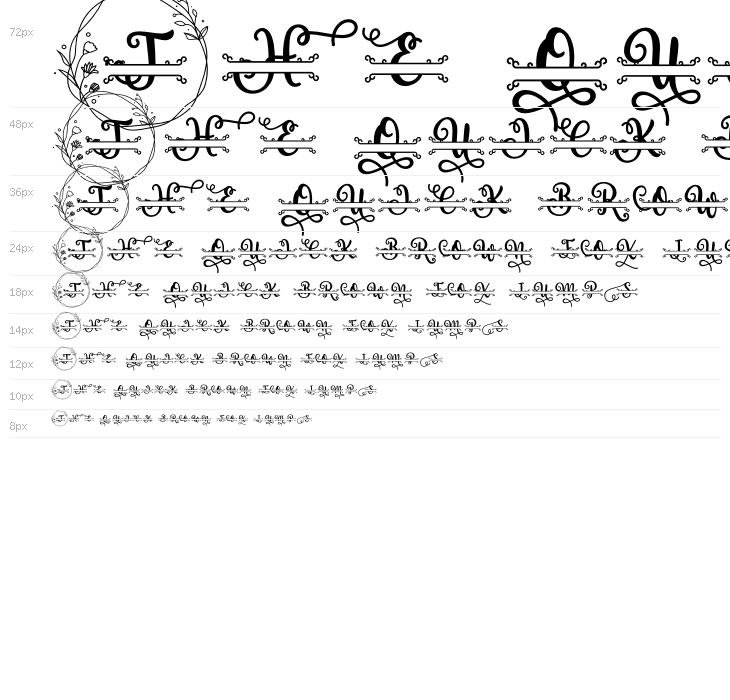 72px THE QU
48px THE QUICK
36px THE QUICK BROW
24px THE QUICK BROWN FOX JU
18px THE QUICK BROWN FOX JUMPS
14px THE QUICK BROWN FOX JUMPS
12px THE QUICK BROWN FOX JUMPS
10px THE QUICK BROWN FOX JUMPS
8px THE QUICK BROWN FOX JUMPS